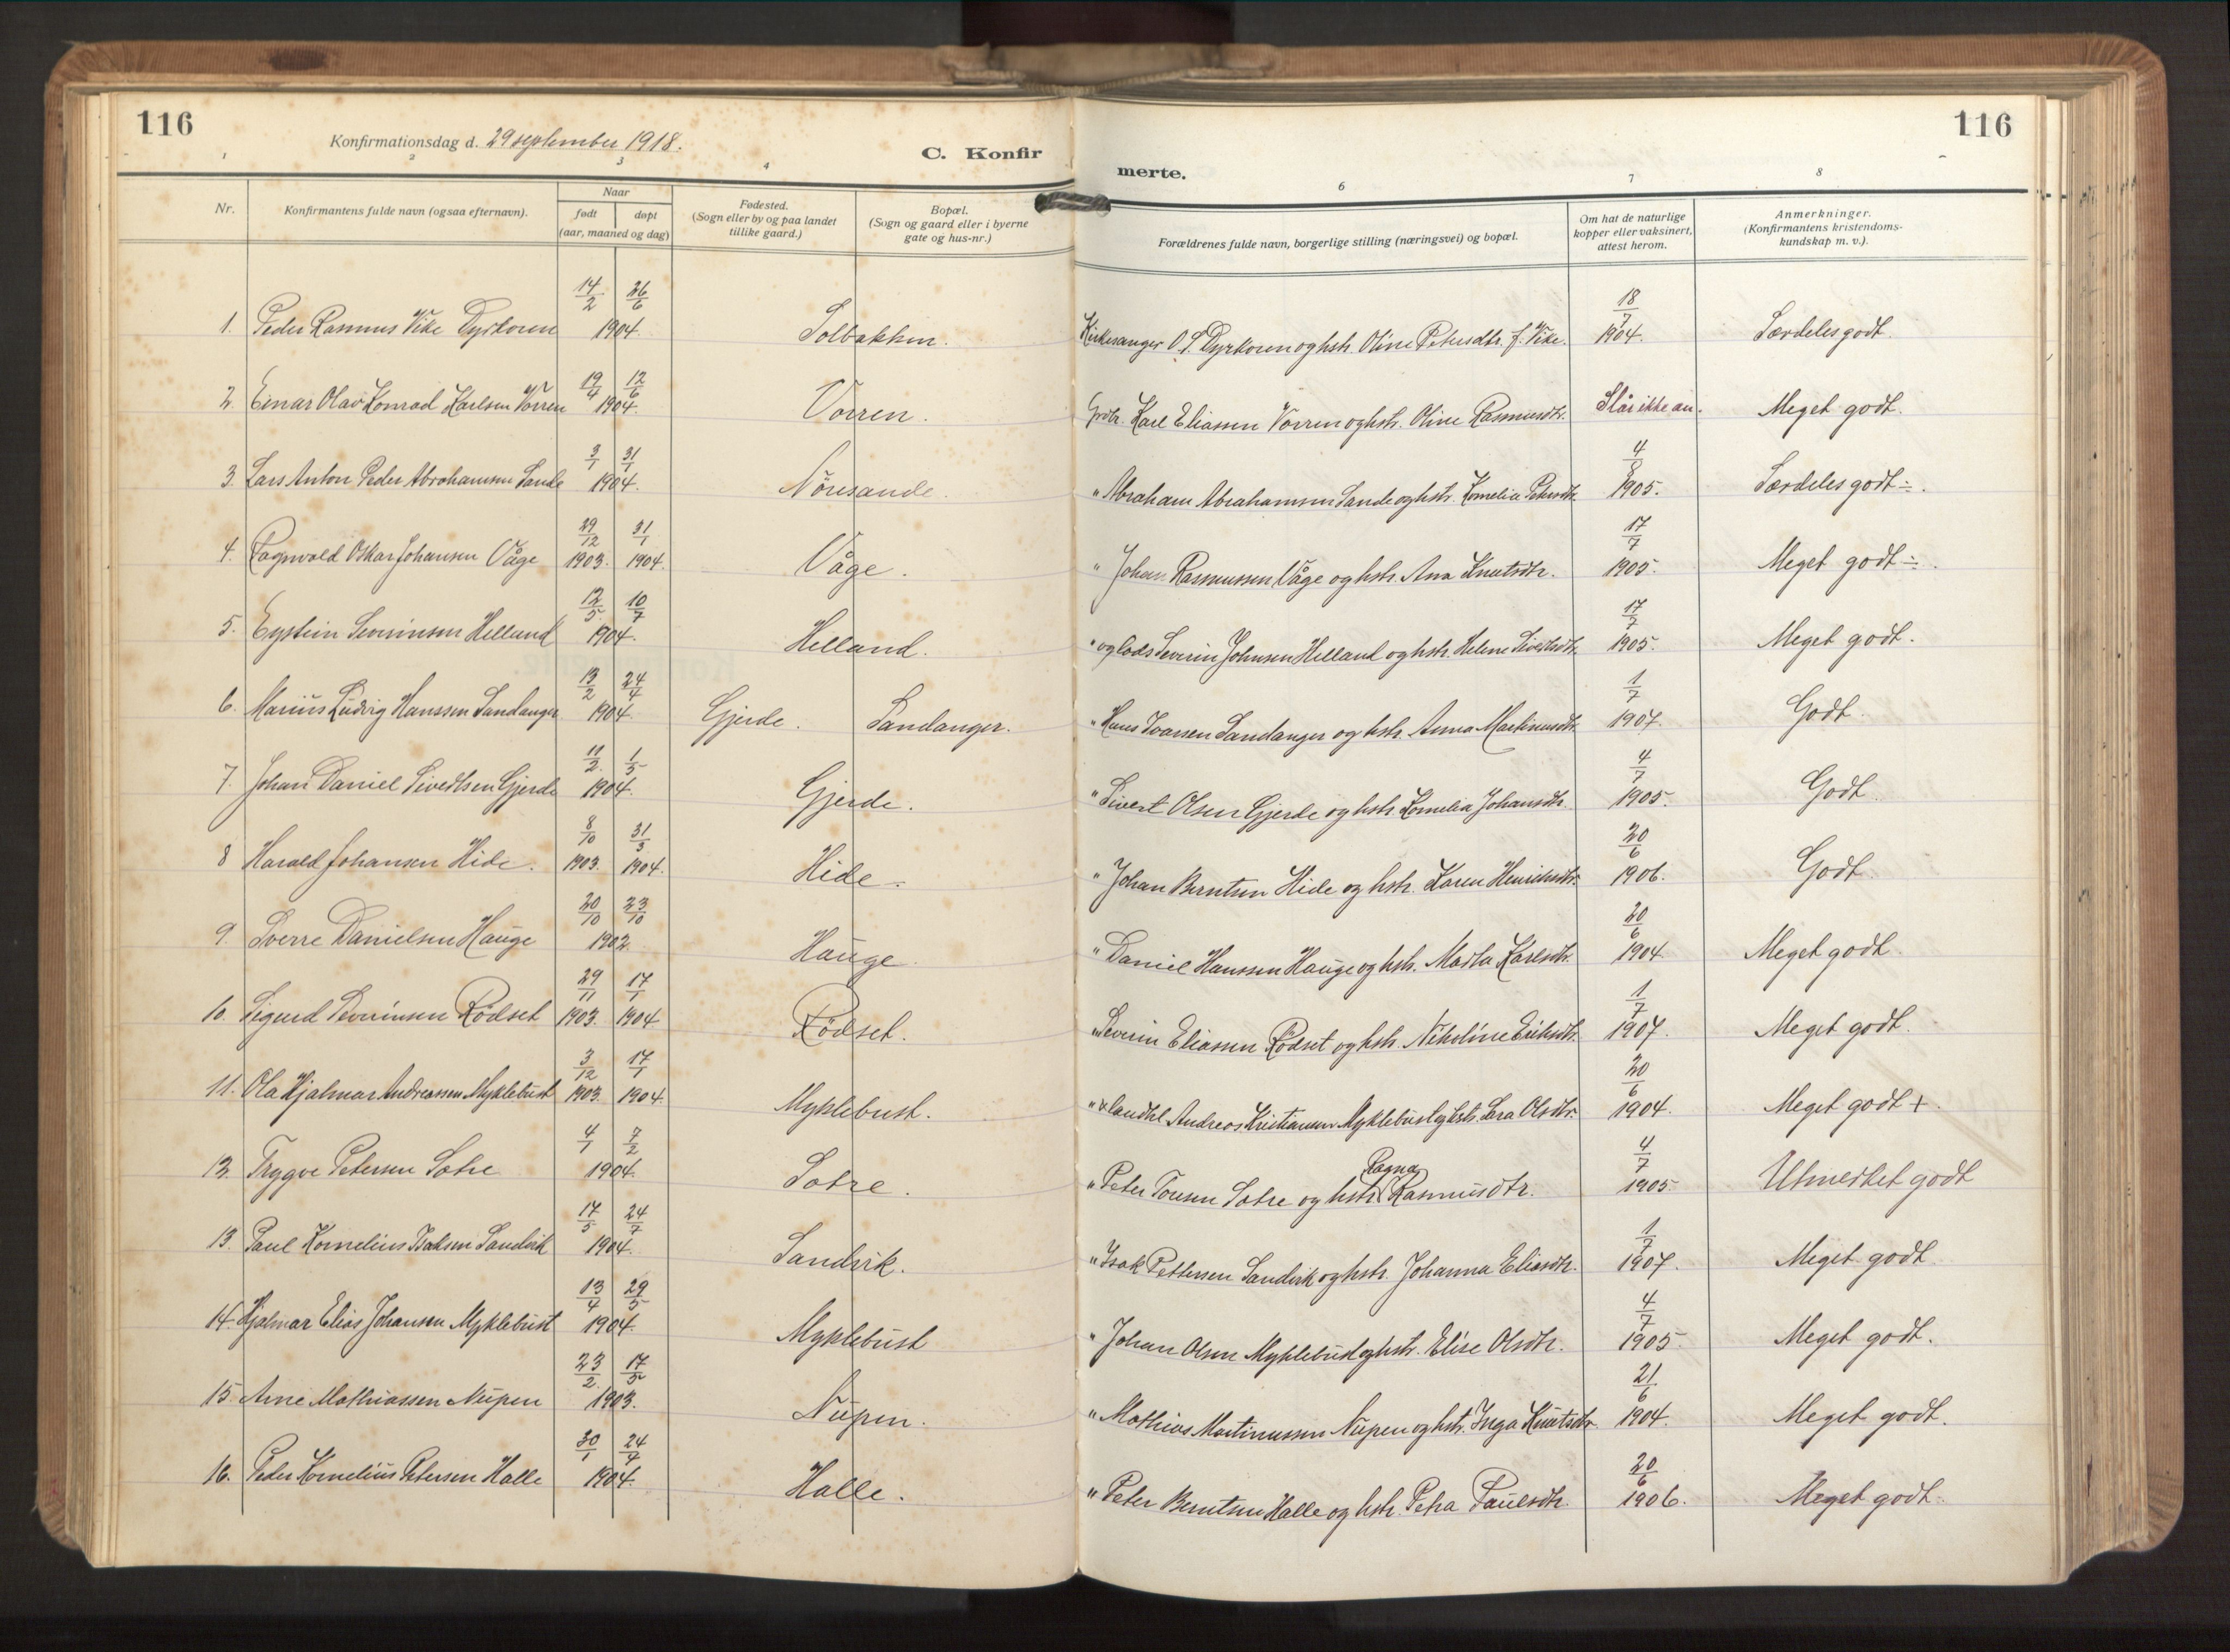 116
Konfirmationsdag d. 29 september 1918.
C. Konfir
1 2 3 4
Nr.
Konfirmantens fulde navn (ogsaa efternavn).
Naar
født døpt
(aar, maaned og dag)
Fødested.
(Sogn eller by og paa landet
tillike gaard.)
Bopæl.
(Sogn og gaard eller i byerne
gate og hus-nr.)
116
merte.
6 7 8
Forældrenes fulde navn, borgerlige stilling (næringsvei) og bopæl.
Om hat de naturlige
kopper eller vaksinert,
attest herom.
Anmerkninger.
(Konfirmantens kristendoms-
kundskap m. v.).
14/2 26/6 18/7
1. Peder Rasmus Vike Dyrkoren 1904. Solbakken. Kirkesanger O. P. Dyrkoren og hstr. Oline Petersdtr. f. Vike. 1904. Særdeles godt.
19/4 12/6
2. Einar Olav Konrad Karlsen Vorren 1904. Vorren. Grdbr. Karl Eliassen Vorren og hstr. Oline Rasmusdtr. Slår ikke an. Meget godt.
3/1 31/1 4/8
3. Lars Anton Peder Abrahamsen Sande 1904. Nöresande. " Abraham Abrahamsen Sande og hstr. Kornelia Petersdtr. 1905. Særdeles godt ÷.
29/12 31/1 17/7
4. Ragnvald Oskar Johansen Våge 1903. 1904. Våge. " Johan Rasmussen Våge og hstr. Ana Knutsdtr. 1905. Meget godt ÷.
12/5 10/7 17/7
5. Eystein Severinsen Helland 1904. Helland. " og lods Severin Johnsen Helland og hstr. Helene Sivertsdtr. 1905. Meget godt.
13/2 24/4 1/7
6. Marius Ludvig Hanssen Sandanger 1904. Gjerde. Sandanger. " Hans Ivarsen Sandanger og hstr. Anna Martinusdtr. 1907. Godt.
11/2 1/5 4/7
7. Johan Daniel Sivertsen Gjerde 1904. Gjerde. " Sivert Olsen Gjerde og hstr. Kornelia Johansdtr. 1905. Godt
8/10 31/3 20/6
8 Harald Johansen Hide. 1903. 1904. Hide. " Johan Berntsen Hide og hstr. Karen Henriksdtr. 1906. Godt
20/10 23/10 20/6
9. Sverre Danielsen Hauge 1902. Hauge. " Daniel Hanssen Hauge og hstr. Marta Karlsdtr. 1904. Meget godt.
29/11 17/1 1/7
10. Sigurd Severinsen Rödset 1903. 1904 Rödset. " Severin Eliassen Rödset og hstr. Nikoline Eriksdtr. 1907. Meget godt.
3/12 17/1 20/6
11. Ola Hjalmar Andreassen Myklebust 1903. 1904. Myklebust. " & landhl. Andreas Kristiansen Myklebust og hstr. Lara Olsdtr. 1904. Meget godt +.
4/1 7/2 Ragna 4/7
12. Trygve Petersen Sotre 1904. Sotre. " Peter Toresen Sotre og hstr. Rasmusdtr. 1905. Utmerket godt
17/5 24/7 1/7
13. Paul Kornelius Isaksen Sandvik 1904. Sandvik. " Isak Pettersen Sandvik og hstr. Johanna Eliasdtr. 1907. Meget godt.
13/4 29/5 4/7
14. Hjalmar Elias Johansen Myklebust 1904. Myklebust " Johan Olsen Myklebust og hstr. Elise Olsdtr. 1905 Meget godt.
23/2 17/5 21/6
15. Arne Mathiassen Nupen 1903. Nupen. " Mathias Martinussen Nupen og hstr. Inga Knutsdtr. 1904. Meget godt.
30/1 24/4 20/6
16. Peder Kornelius Petersen Halle 1904. Halle. " Peter Berntsen Halle og hstr. Petra Paulsdtr. 1906. Meget godt.